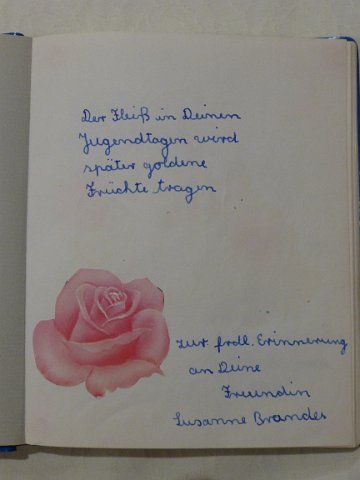 Der Fleiß in Deinen
Jugendtagen wird
später goldene
Früchte tragen
zur frdl. Erinnerung
an Deine
Freundin
Susanne Brandes